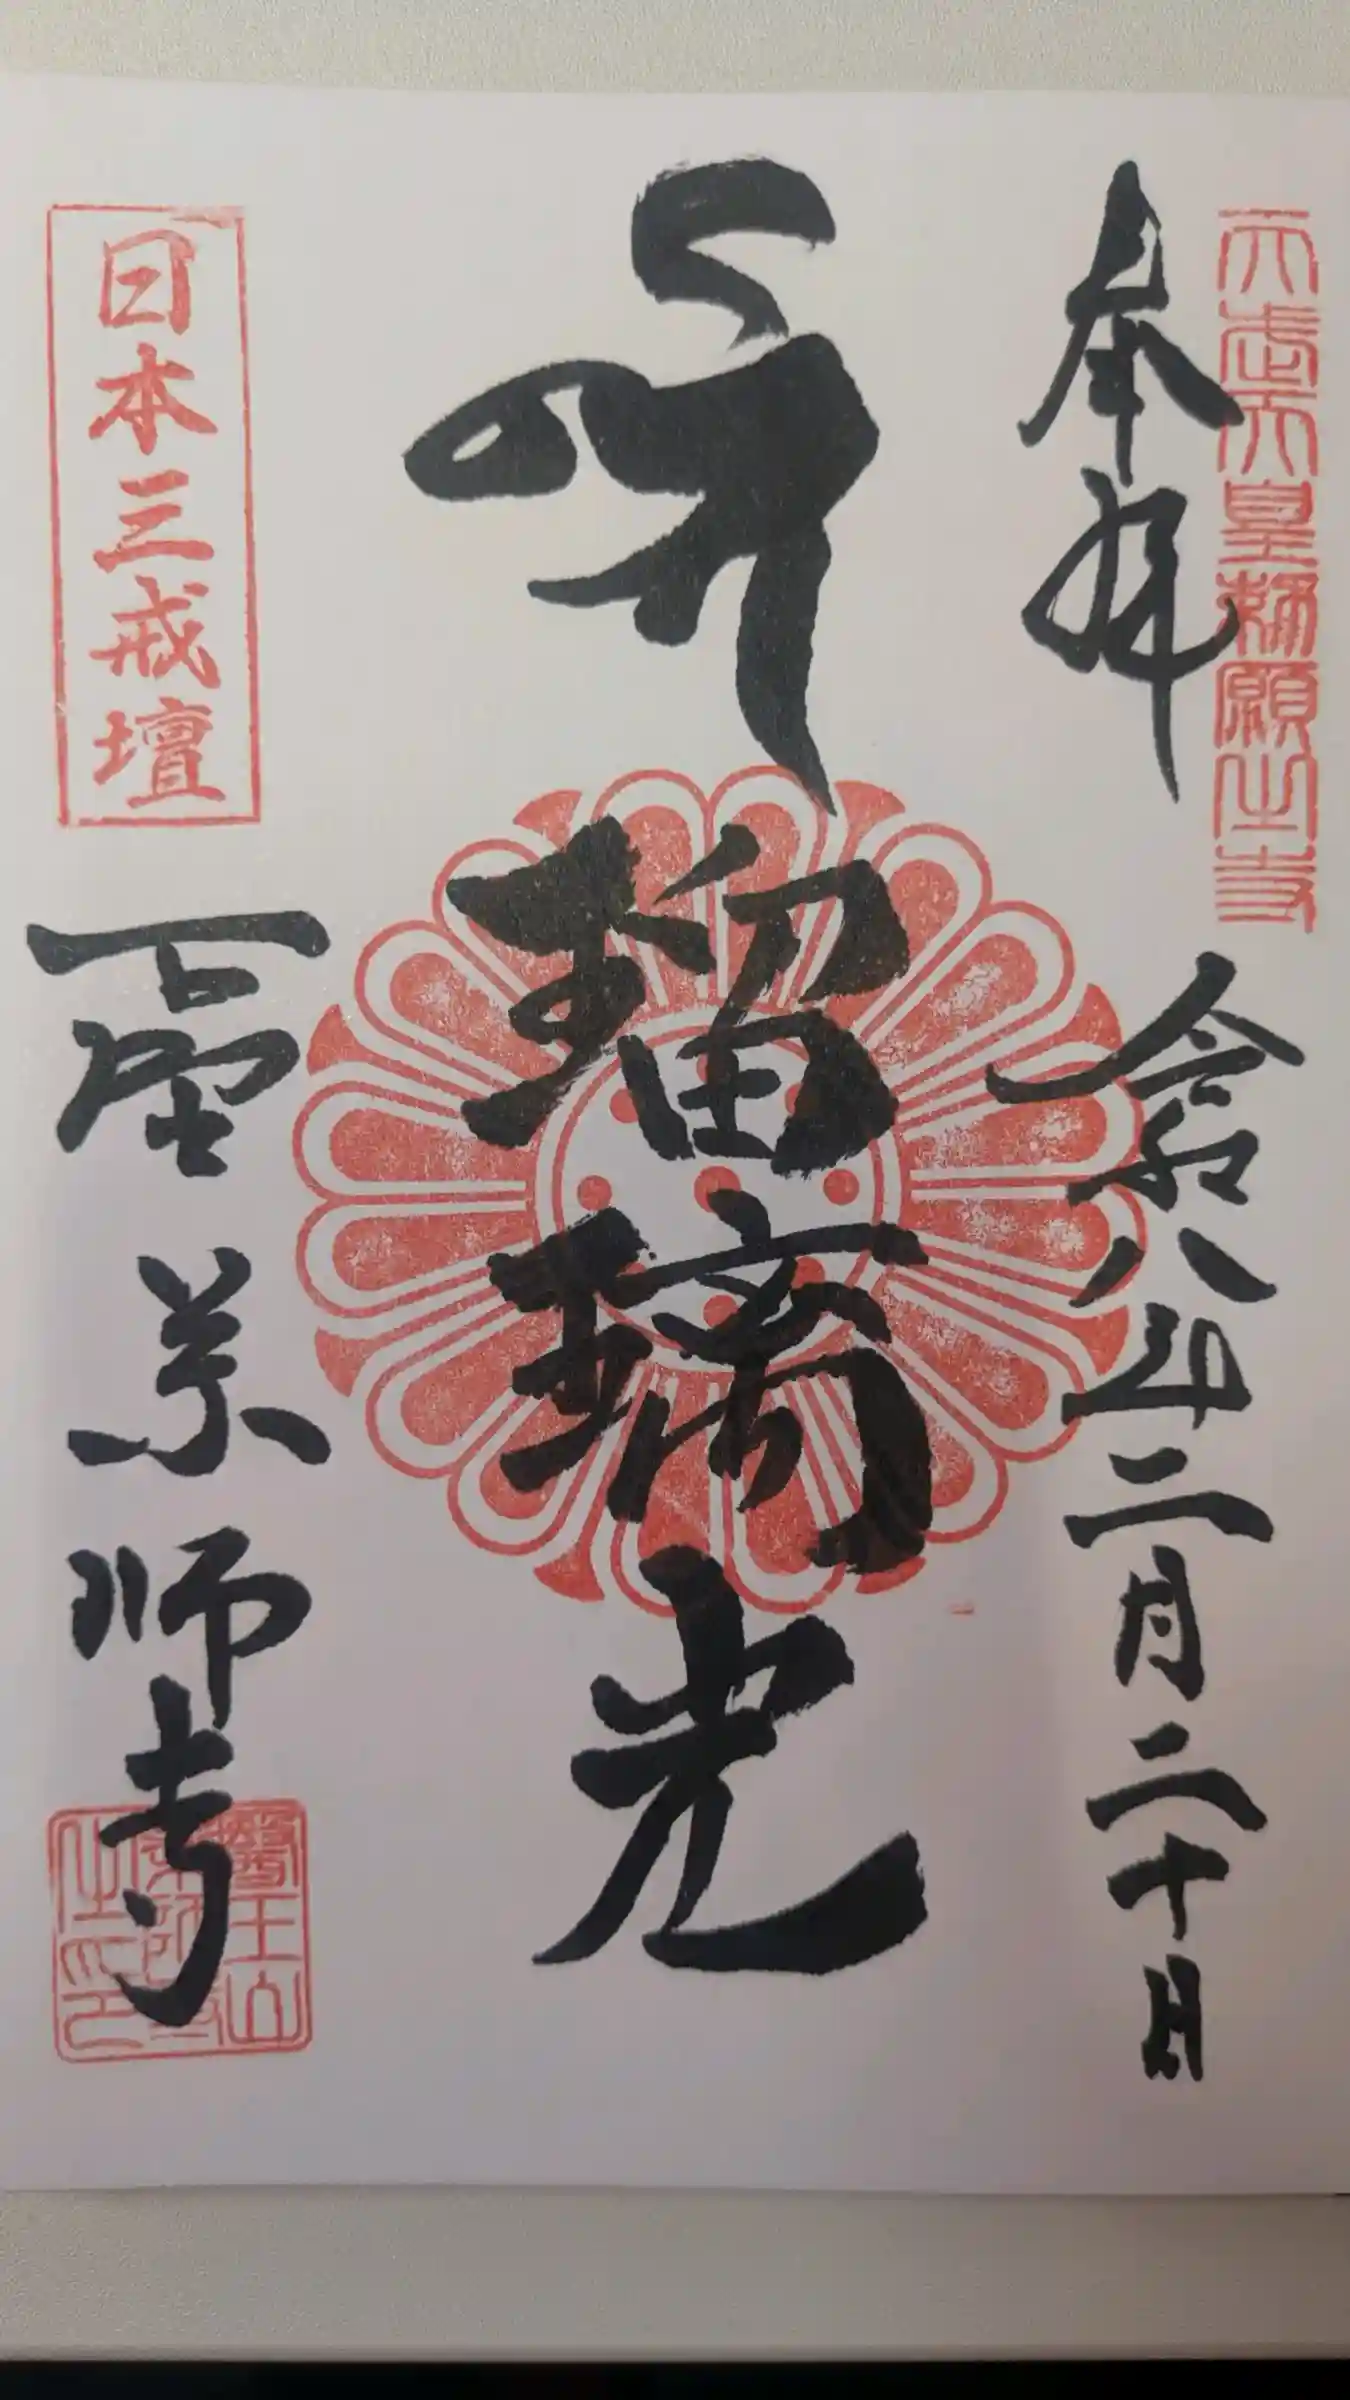 天武天皇勅願之寺
奉拝
令和八年二月二十日
瑠璃光
日本三戒壇
下野薬師寺
醫王山
薬師寺
之印